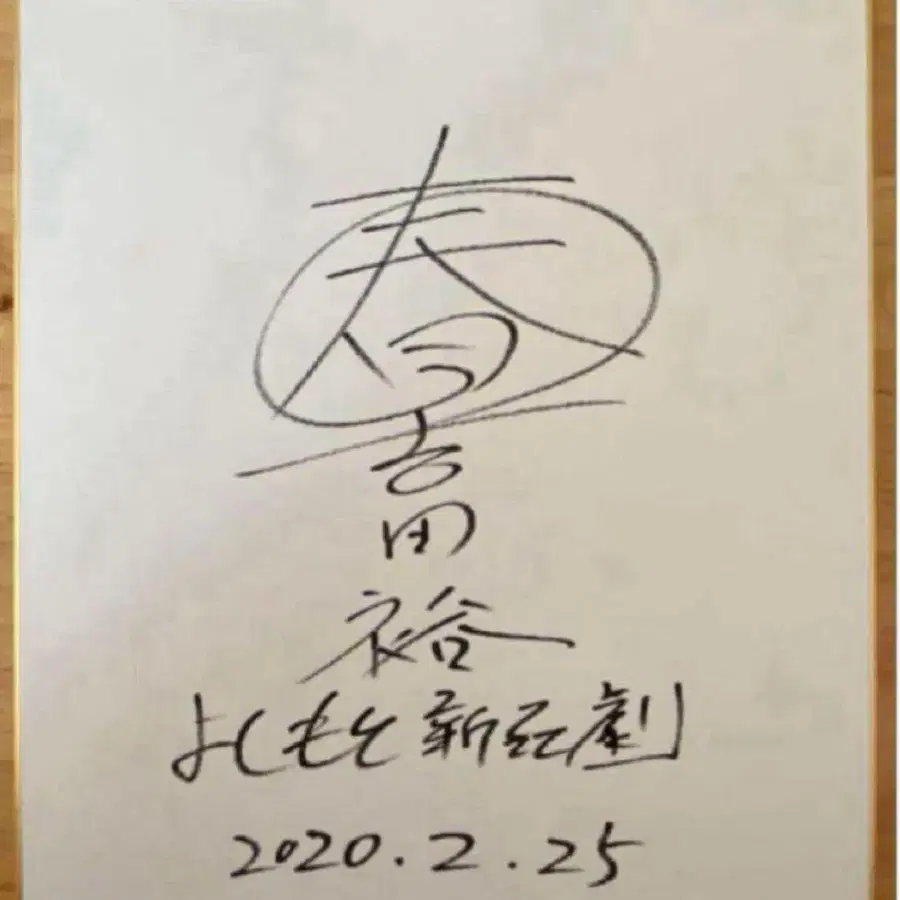 春
吉田裕
よしもと新喜劇
2020.2.25